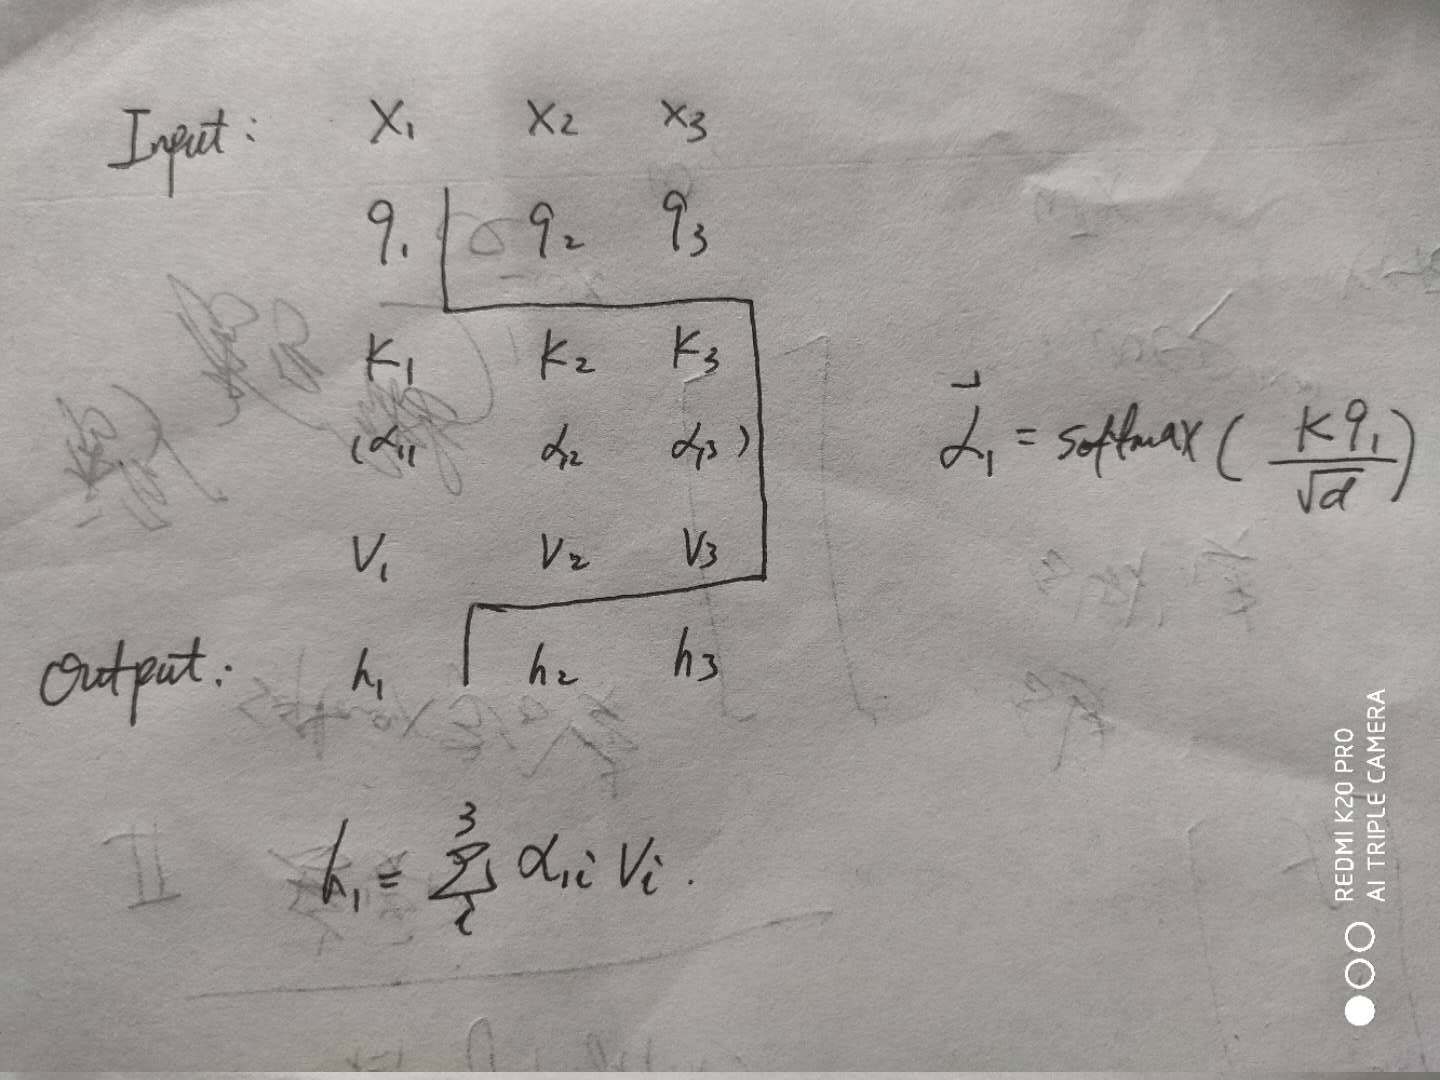 Input: X₁ X₂ X₃
q₁ q₂ q₃
K₁ K₂ K₃
(α₁₁ α₁₂ α₁₃)
V₁ V₂ V₃
Output: h₁ h₂ h₃
α⃗₁ = softmax(Kq₁/√d)
h₁ = Σᵢ³ α₁ᵢ Vᵢ.
REDMI K20 PRO
AI TRIPLE CAMERA